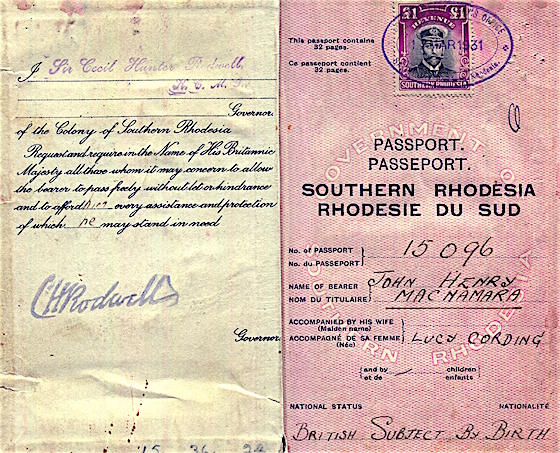 I Sir Cecil Hunter Rodwell,
K. C. M. G.
Governor
of the Colony of Southern Rhodesia
Request and require in the Name of His Britannic
Majesty all those whom it may concern to allow
the bearer to pass freely without let or hindrance
and to afford him every assistance and protection
of which he may stand in need
CHRodwell
Governor.
15 36 24
This passport contains
32 pages.
Ce passeport contient
32 pages.
£1 REVENUE £1
SOUTHERN RHODESIA
MAR 1931
PASSPORT.
PASSEPORT.
SOUTHERN RHODESIA
RHODESIE DU SUD
GOVERNMENT OF
SOUTHERN RHODESIA
No. of PASSPORT
No. du PASSEPORT
15096
NAME OF BEARER
NOM DU TITULAIRE
JOHN HENRY
MACNAMARA
ACCOMPANIED BY HIS WIFE
(Maiden name)
ACCOMPAGNÉ DE SA FEMME
(Née)
LUCY CORDING
and by — children
et de enfants
NATIONAL STATUS NATIONALITÉ
BRITISH SUBJECT BY BIRTH